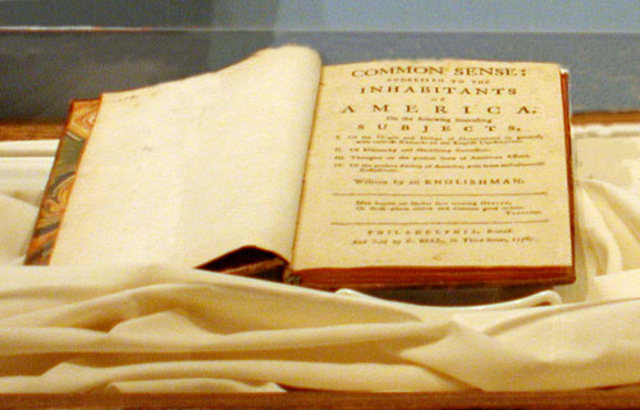 COMMON SENSE:
ADDRESSED TO THE
INHABITANTS
OF
AMERICA,
On the following interesting
SUBJECTS,
I. Of the Origin and Design of Government in general,
with concise Remarks on the English Constitution.
II. Of Monarchy and Hereditary Succession.
III. Thoughts on the present State of American Affairs.
IV. Of the present Ability of America, with some miscellaneous
Reflections.
Written by an ENGLISHMAN.
Man knows no Master save creating HEAVEN,
Or those whom choice and common good ordain.
THOMSON.
PHILADELPHIA, Printed
And Sold by R. BELL, in Third-Street, 1776.